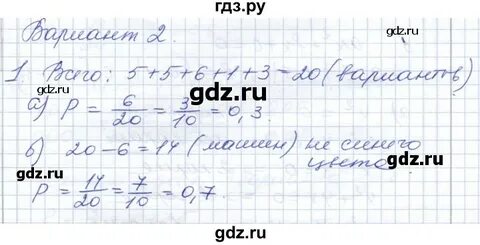 гдз.ру
Вариант 2.
1. Всего: 5+5+6+1+3=20 (вариантов)
gdz.ru
gdz.ru
а) P = 6/20 = 3/10 = 0,3.
gdz.ru
б) 20-6=14 (машин) не синего
цвета.
gdz.ru
P = 14/20 = 7/10 = 0,7.
gdz.ru